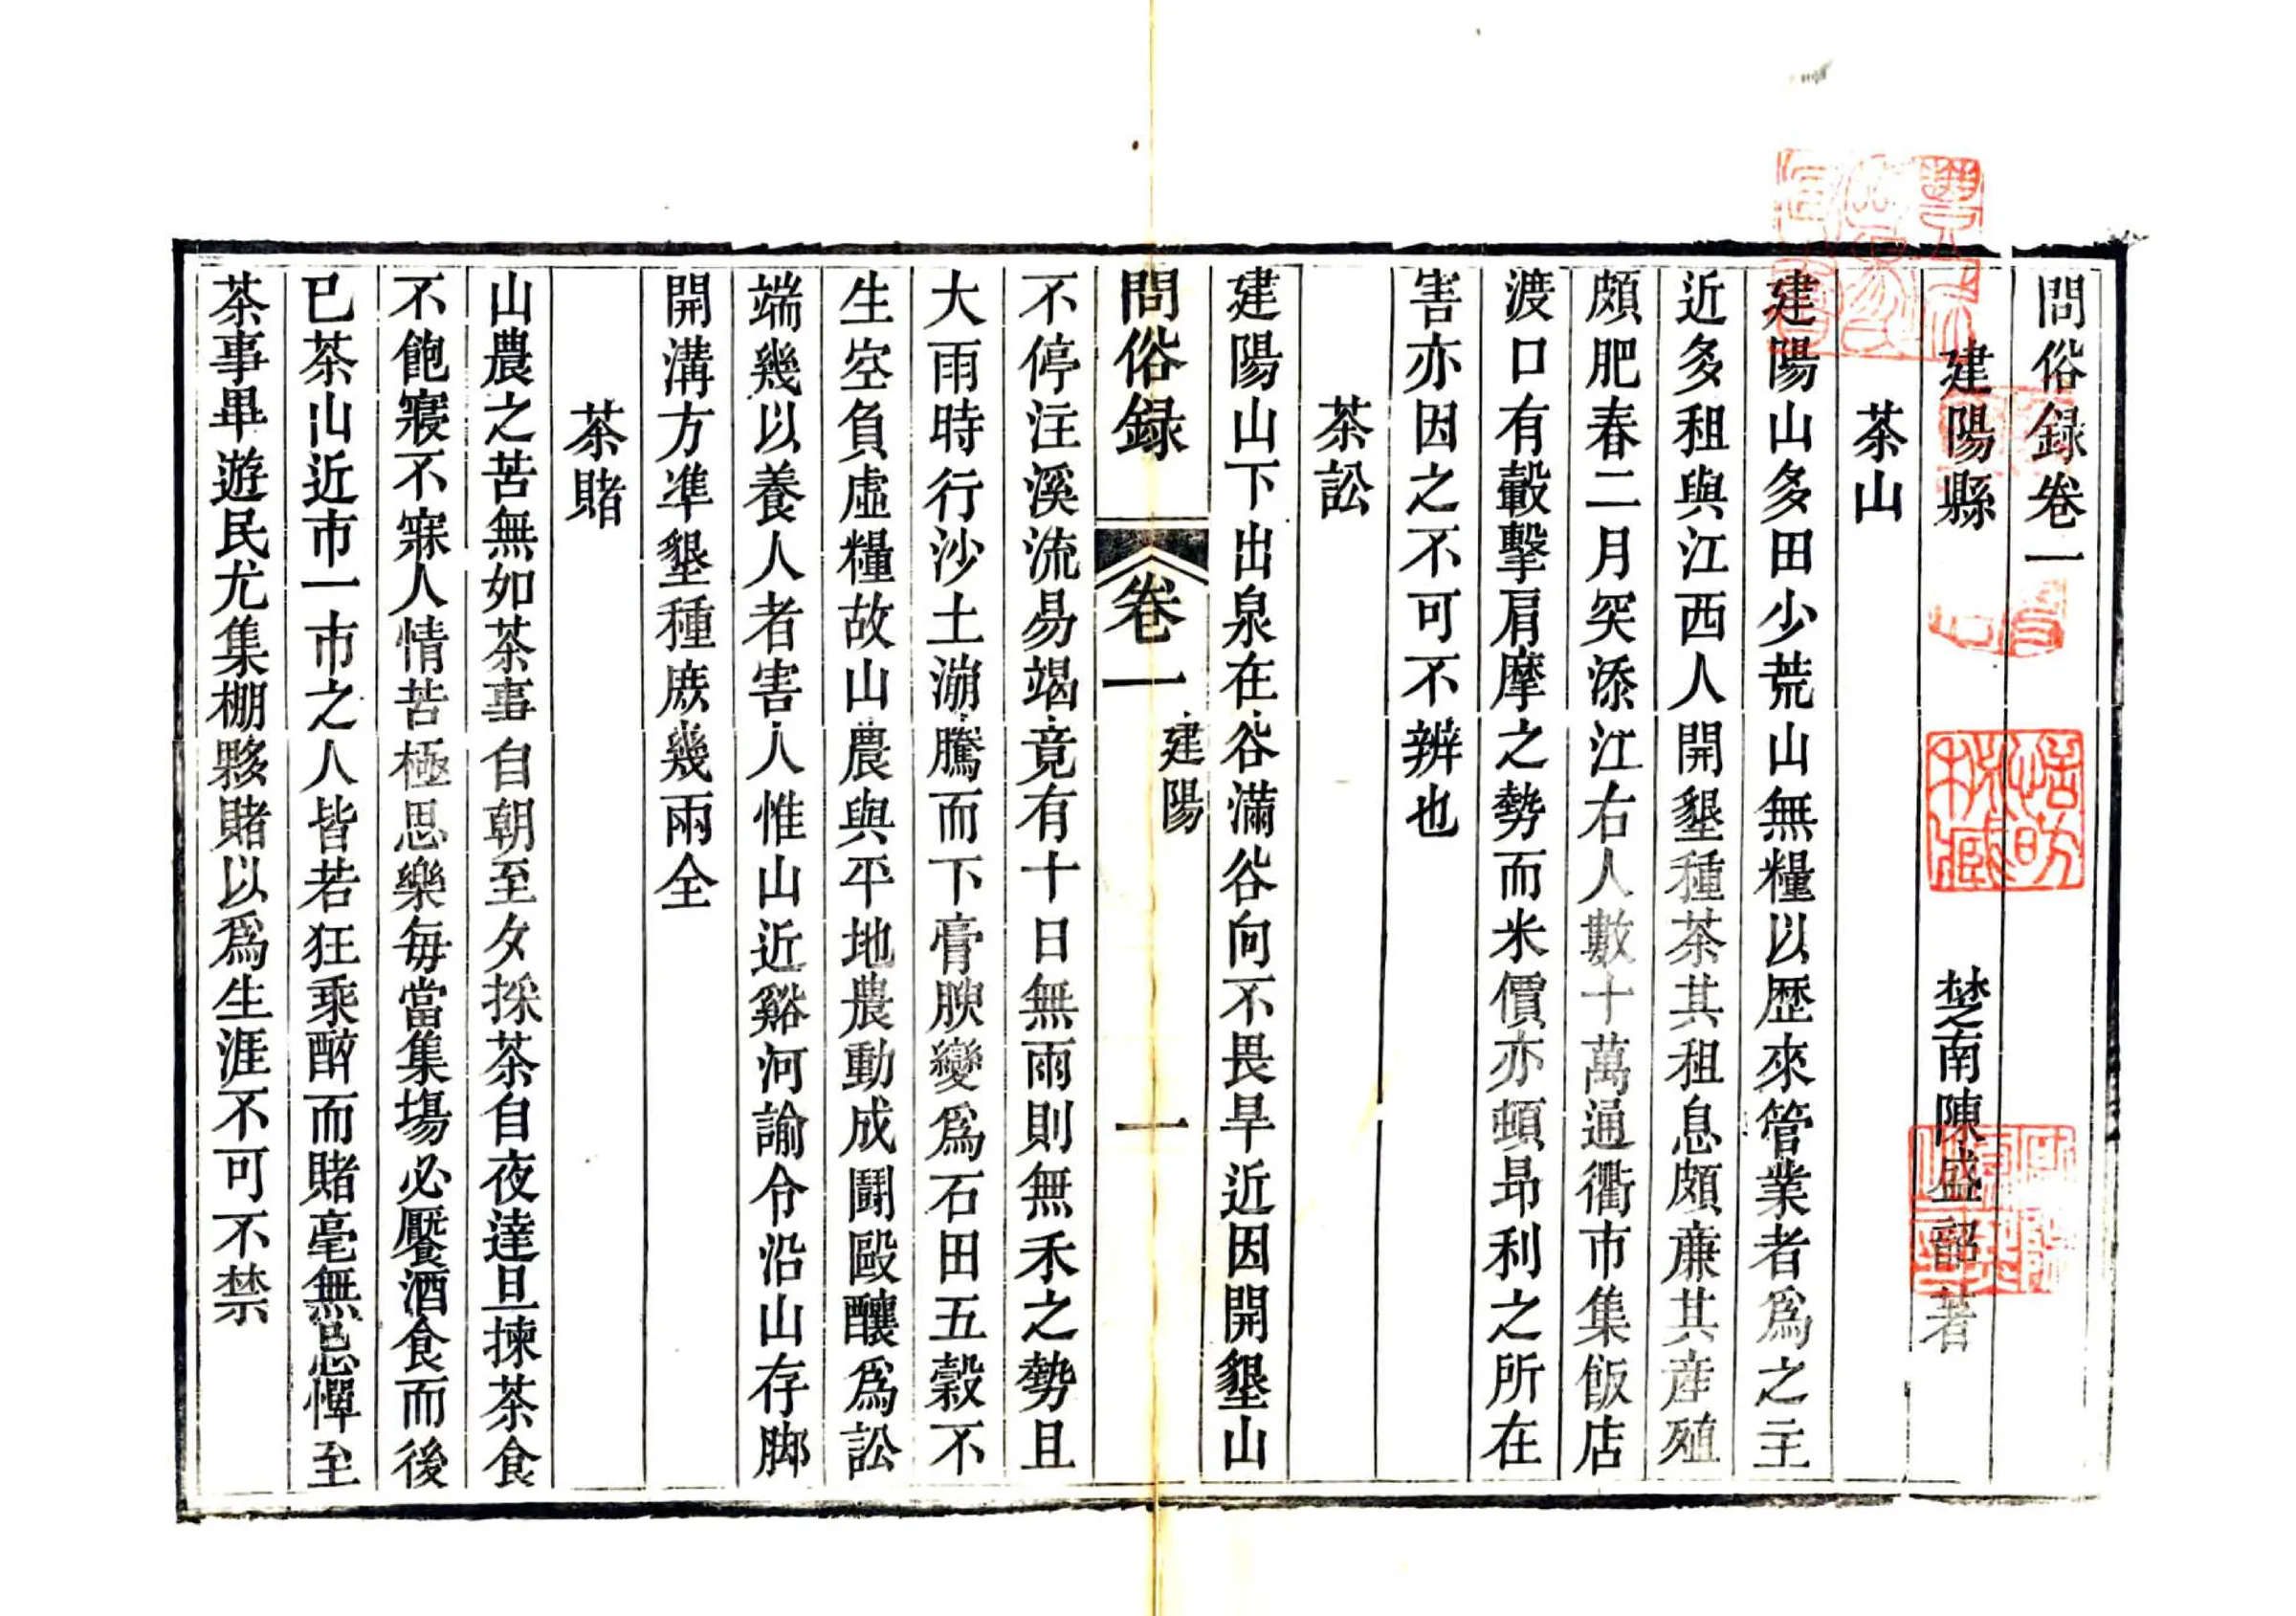 問俗録卷一
建陽縣 楚南陳盛韶著
茶山
建陽山多田少荒山無糧以歷來管業者爲之主
近多租與江西人開墾種茶其租息頗廉其產殖
頗肥春二月突添江右人數十萬通衢市集飯店
渡口有轂擊肩摩之勢而米價亦頓昂利之所在
害亦因之不可不辨也
茶訟
建陽山下出泉在谷滿谷向不畏旱近因開墾山
問俗録 卷一 建陽 一
不停注溪流易竭竟有十日無雨則無禾之勢且
大雨時行沙土漰騰而下膏腴變爲石田五穀不
生空負虛糧故山農與平地農動成鬭毆釀爲訟
端幾以養人者害人惟山近谿河諭令沿山存脚
開溝方准墾種庻幾兩全
茶賭
山農之苦無如茶事自朝至夕採茶自夜達旦揀茶食
不飽寢不寐人情苦極思樂每當集塲必饜酒食而後
已茶山近市一市之人皆若狂乘醉而賭毫無忌憚至
茶事畢遊民尤集棚夥賭以爲生涯不可不禁